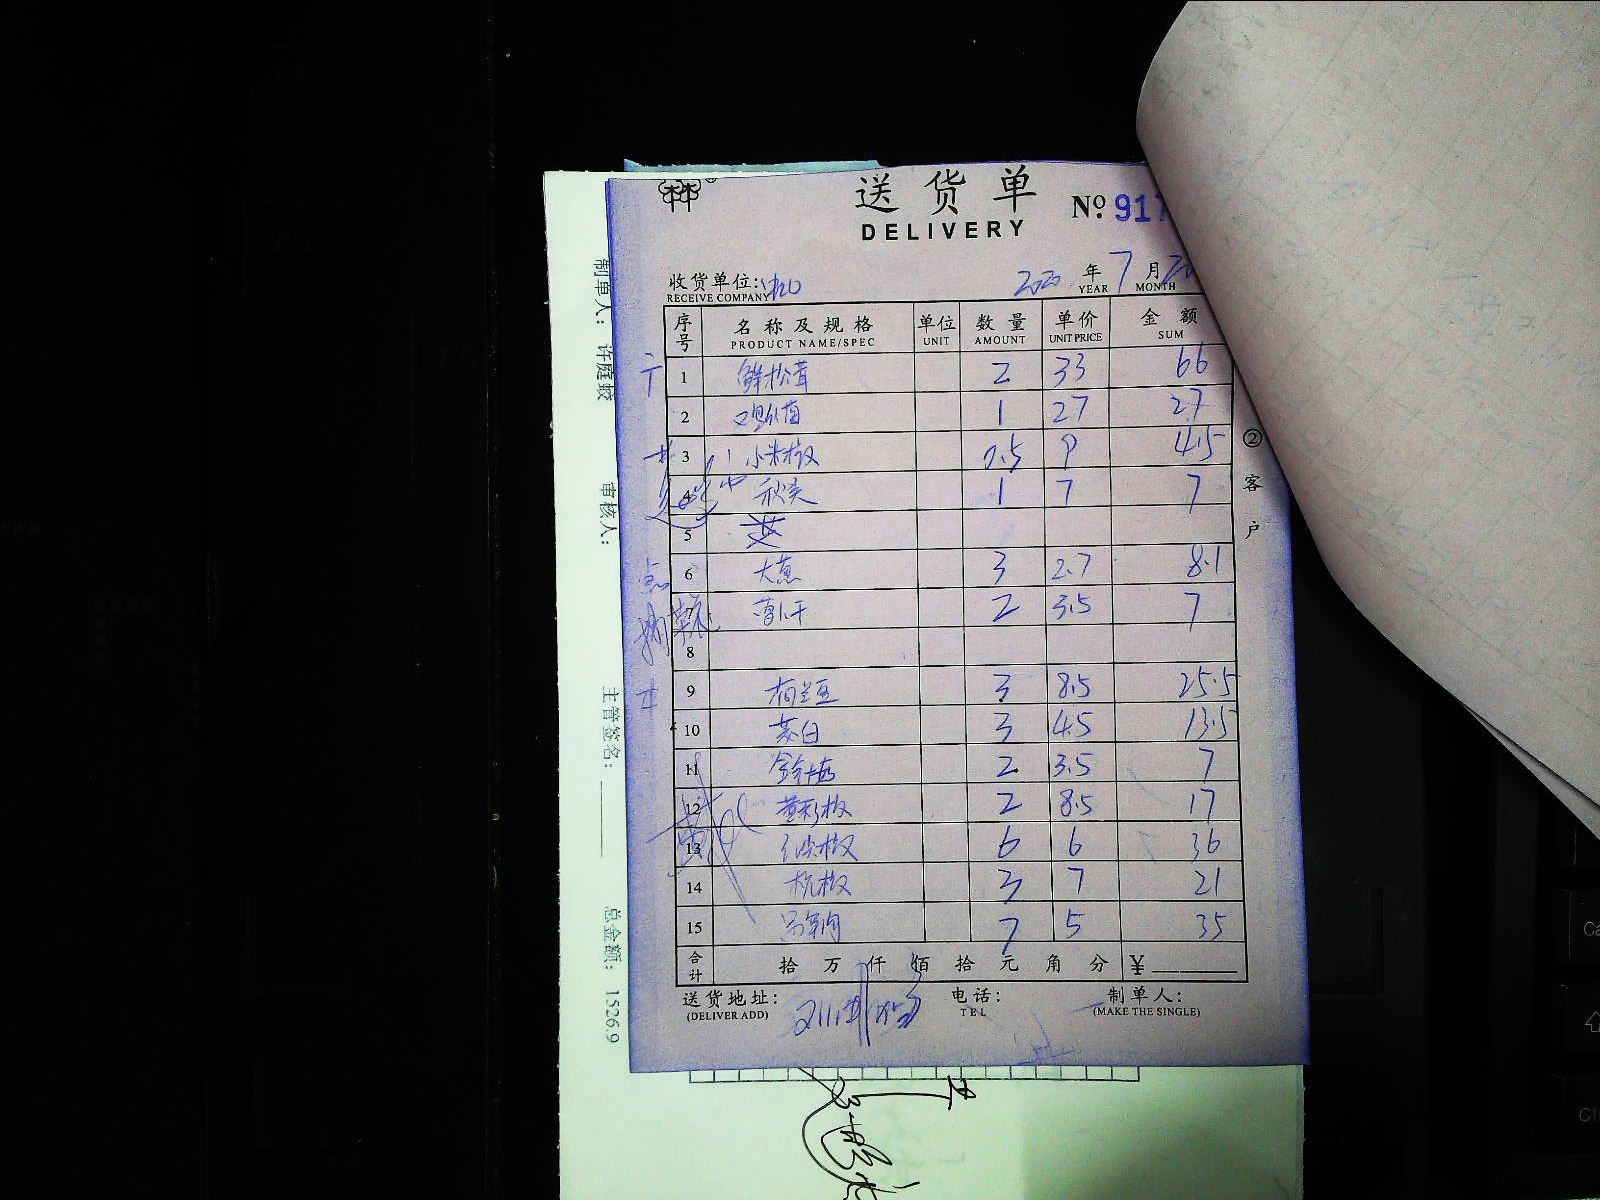 送货单
DELIVERY
№ 917
收货单位:
RECEIVE COMPANY
2020 年 7 月 20
YEAR MONTH
序号 名称及规格 单位 数量 单价 金额
PRODUCT NAME/SPEC UNIT AMOUNT UNIT PRICE SUM
1 鲜松茸 2 33 66
2 1 27 27
3 小米椒 0.5 9 4.5
4 秋葵 1 7 7
5
6 大葱 3 2.7 8.1
7 2 3.5 7
8
9 荷兰豆 3 8.5 25.5
10 茭白 3 4.5 13.5
11 2 3.5 7
12 黄彩椒 2 8.5 17
13 6 6 36
14 杭椒 3 7 21
15 7 5 35
合计 拾 万 仟 佰 拾 元 角 分 ¥
送货地址: 电话: 制单人:
(DELIVER ADD) TEL (MAKE THE SINGLE)
②客户
制单人: 许庭蛟
审核人:
主管签名:
总金额: 1526.9